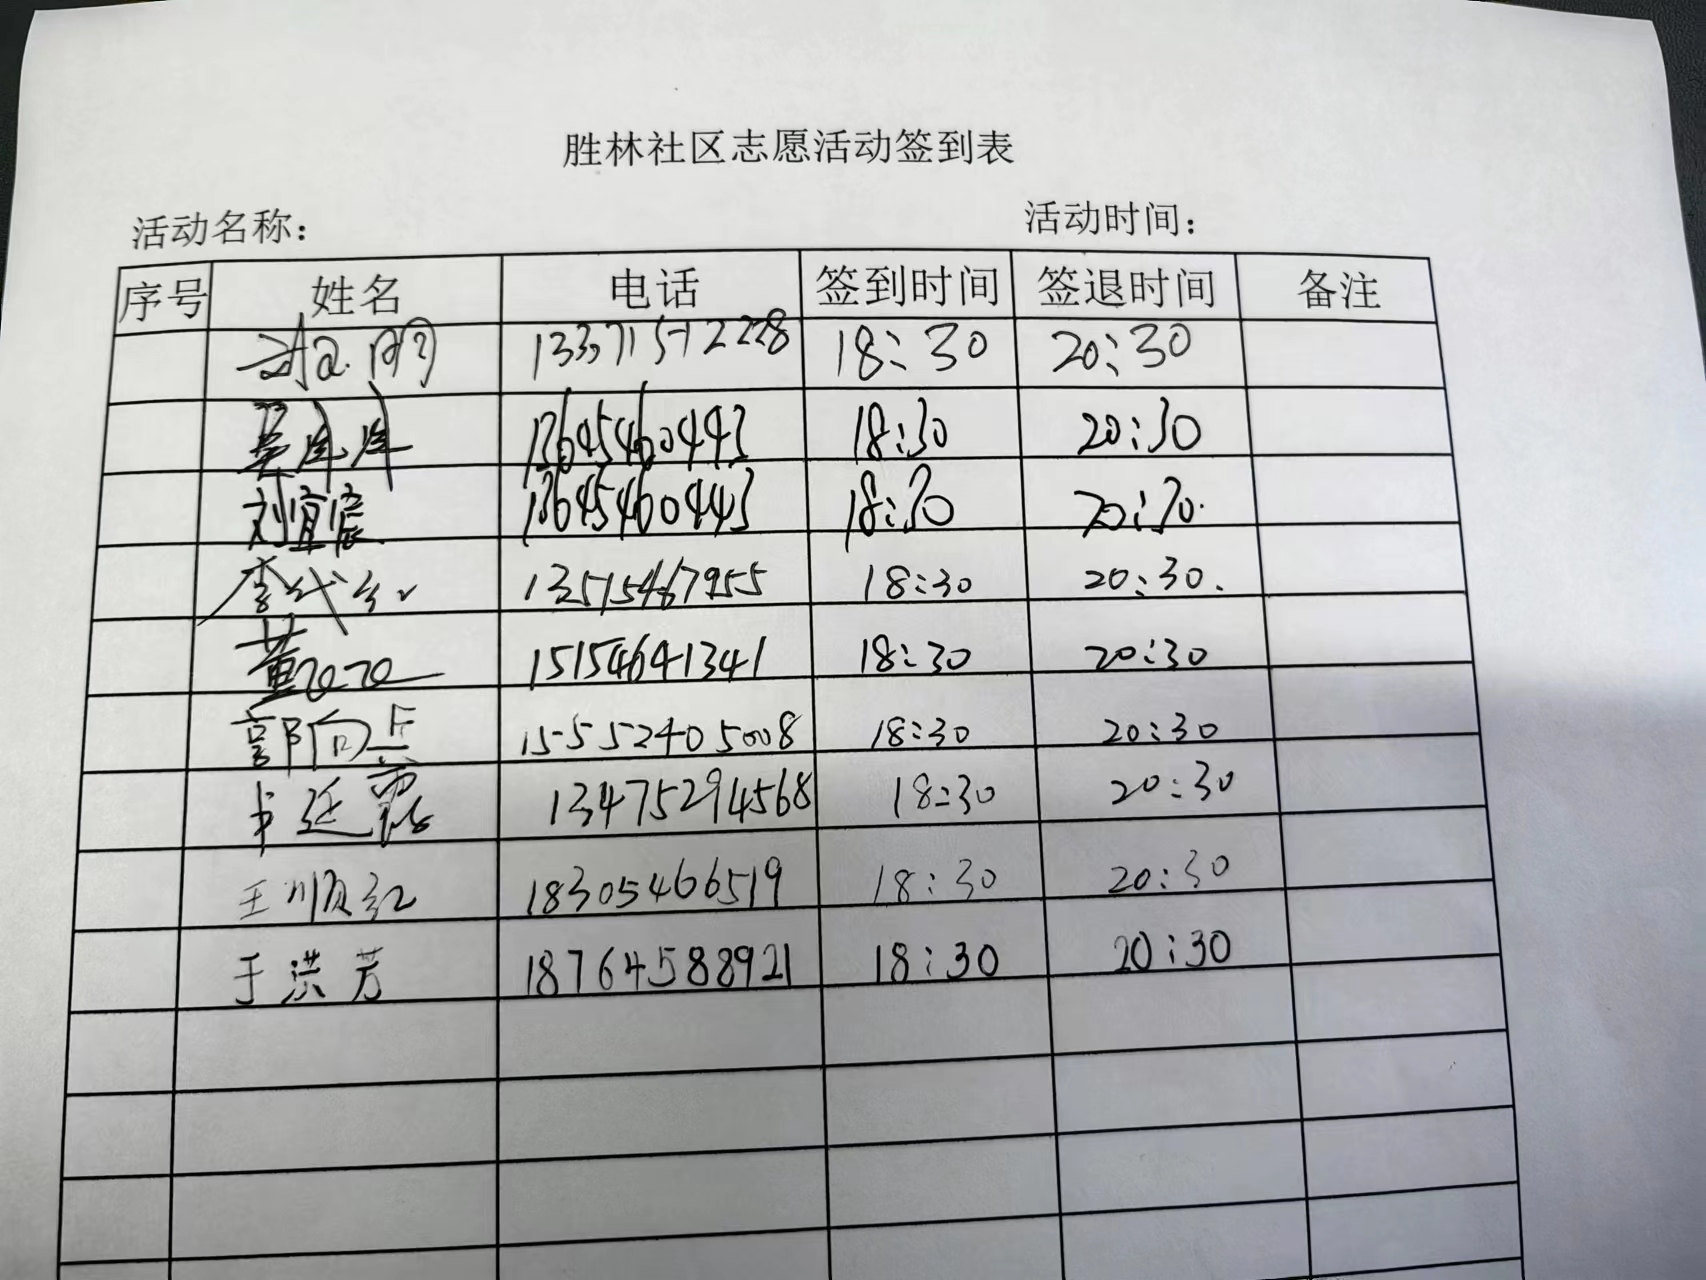 胜林社区志愿活动签到表
活动名称： 活动时间：
序号 姓名 电话 签到时间 签退时间 备注
13371512228 18:30 20:30
13645460443 18:30 20:30
刘宜宸 13645460443 18:30 20:30
李代红 13515467955 18:30 20:30.
董 15154641341 18:30 20:30
郭向兵 15552405008 18:30 20:30
廷霞 13475294568 18:30 20:30
王顺红 18305466519 18:30 20:30
于洪芳 18764588921 18:30 20:30